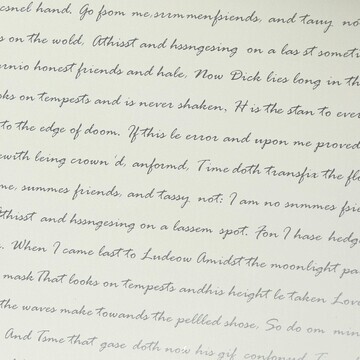 esnel hand. Go fsom me, summenfsiends, and tasy no
s on the wold, Athisst and hssngesing on a las st someti
ernio honest friends and hale. Now Dick lies long in th
oks on tempests and is never shaken, H is the stan to ever
to the edge of doom. If this le error and upon me proved
ewith leing crown'd, anformd, Time doth transfix the fl
me, summes friends, and tassy not: I am no snmmes fsie
Athisst and hssngesing on a lassem spot. Fon I hase hedg
When I came last to Ludeow Amidst the moonlight pa
mask That looks on tempests andhis height le taken Lov
the waves make towands the pellled shose, So do om min
And Tsme that gase doth now his gif confonnd